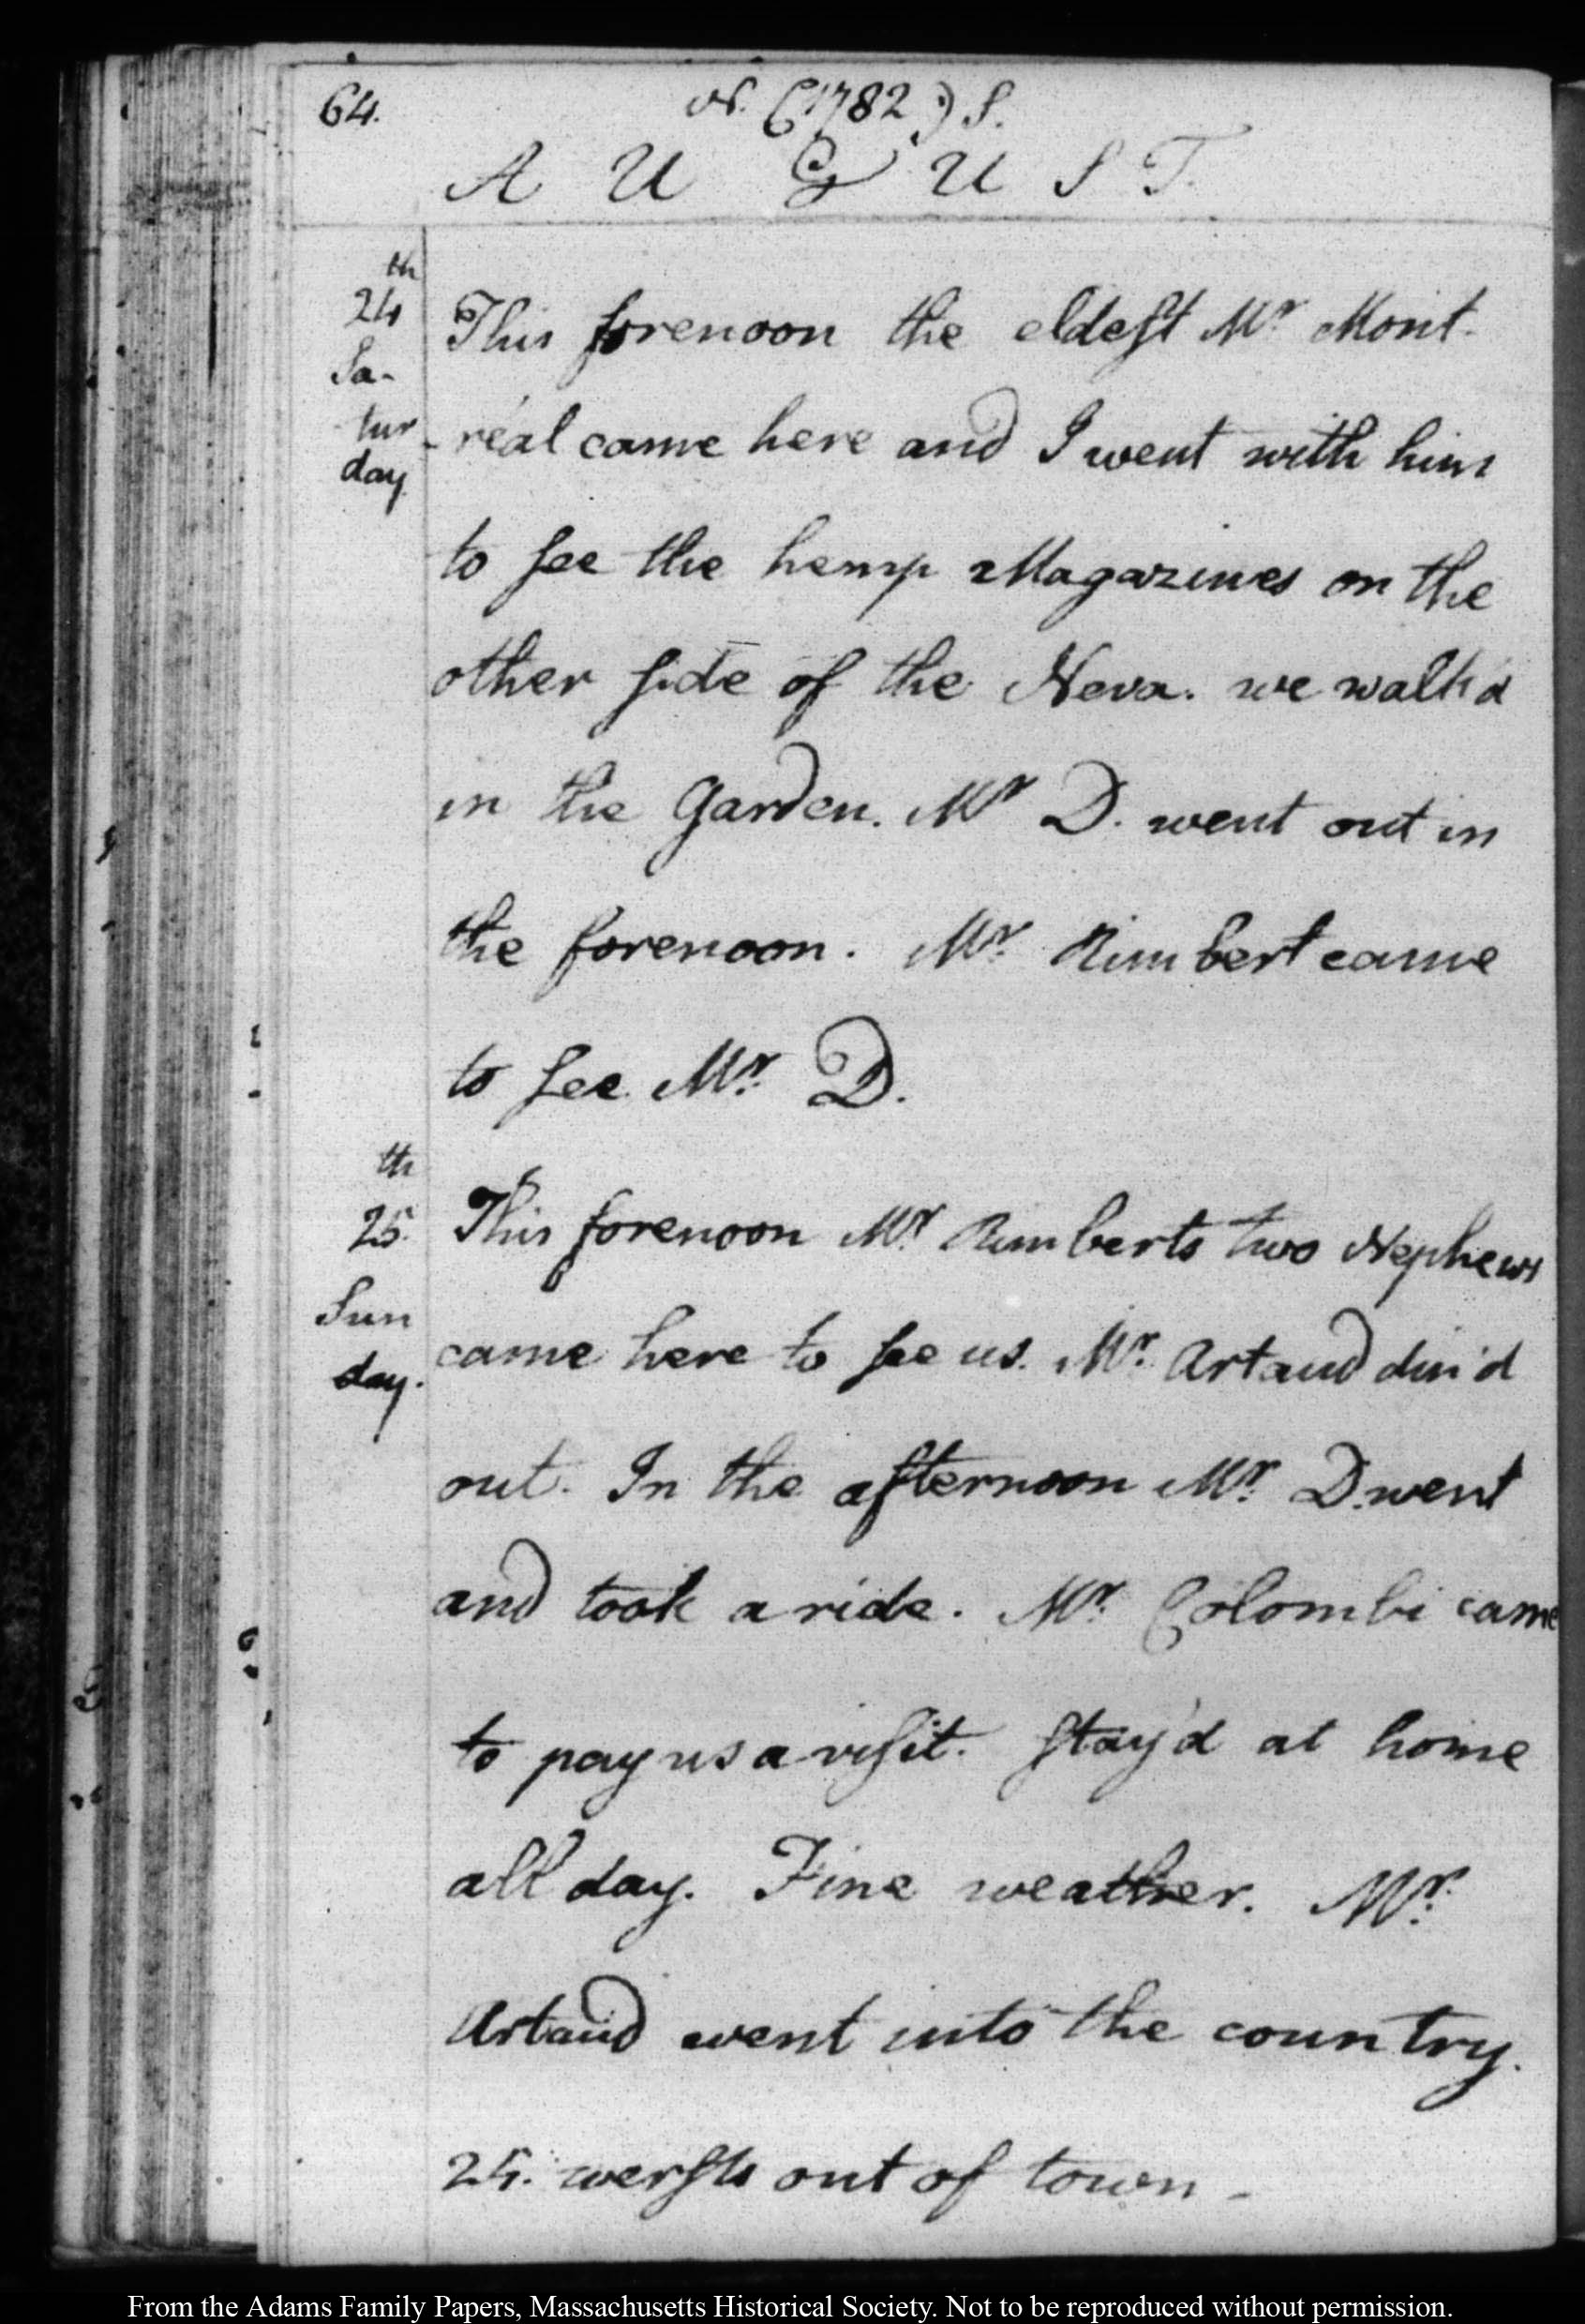 64.
N. (1782.) S.
A U G U S T.
24th Sa-
tur
day
This forenoon the eldest Mr. Mont-
-réal came here and I went with him
to see the hemp Magazines on the
other side of the Neva. we walk'd
in the Garden. Mr. D. went out in
the forenoon. Mr. Rimbert came
to see Mr. D.
25th.
Sun
day.
This forenoon Mr. Rimberts two Nephews
came here to see us. Mr. Artaud din'd
out. In the afternoon Mr. D. went
and took a ride. Mr. Colombi came
to pay us a visit. stay'd at home
all day. Fine weather. Mr.
Artaud went into the country.
25. wersts out of town -
From the Adams Family Papers, Massachusetts Historical Society. Not to be reproduced without permission.